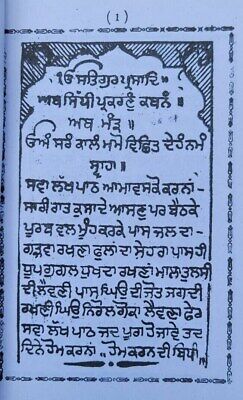 ( 1 )
ੴ ਸਤਿਗੁਰਪ੍ਰਸਾਦਿ
ਅਥ ਸਿੱਧੀ ਪ੍ਰਕਰਣੰ ਕਥਨੰ ॥
ਅਥ ਮੰਤ੍ਰ ॥
ਓਅੰ ਸਰੰ ਕਾਲੰ ਮਮੇ ਇਛਿਤ ਦੇਹਿ ਨਮੰ
ਸ੍ਵਾਹਾ ॥
ਸਵਾ ਲੱਖ ਪਾਠ ਆਮਾਵਸਕੋ ਕਰਨਾਂ
ਸਾਰੀ ਰਾਤ ਕੁਸ਼ਾਦੇ ਆਸਣ ਪਰ ਬੈਠਕੇ
ਪੂਰਬ ਵਲ ਮੂੰਹ ਕਰਕੇ ਪਾਸ ਜਲ ਦਾ
ਗੜਵਾ ਰਖਣਾ ਫੁਲਾਂ ਦਾ ਸੇਹਰਾ ਪਾਸ ਹੀ
ਧੂਪ ਗੁਗਲ ਧੁਖਦਾ ਰਖਣਾਂ ਮਾਲਾ ਤੁਲਸੀ
ਦੀ ਲੈਵਣੀ ਪਾਸ ਘਿਉ ਦੀ ਜੋਤ ਜਗਦੀ
ਰਖਣੀ ਘਿਉ ਨਿਰੋਲ ਗੋਕਾ ਲੈਵਣਾ ਫੇਰ
ਸਵਾ ਲੱਖ ਪਾਠ ਜਦ ਪੂਰਾ ਹੋ ਜਾਵੇ ਤਦ
ਦਿਨੇ ਹੋਮ ਕਰਨਾਂ ॥ ਹੋਮ ਕਰਨ ਦੀ ਬਿਧੀ ॥